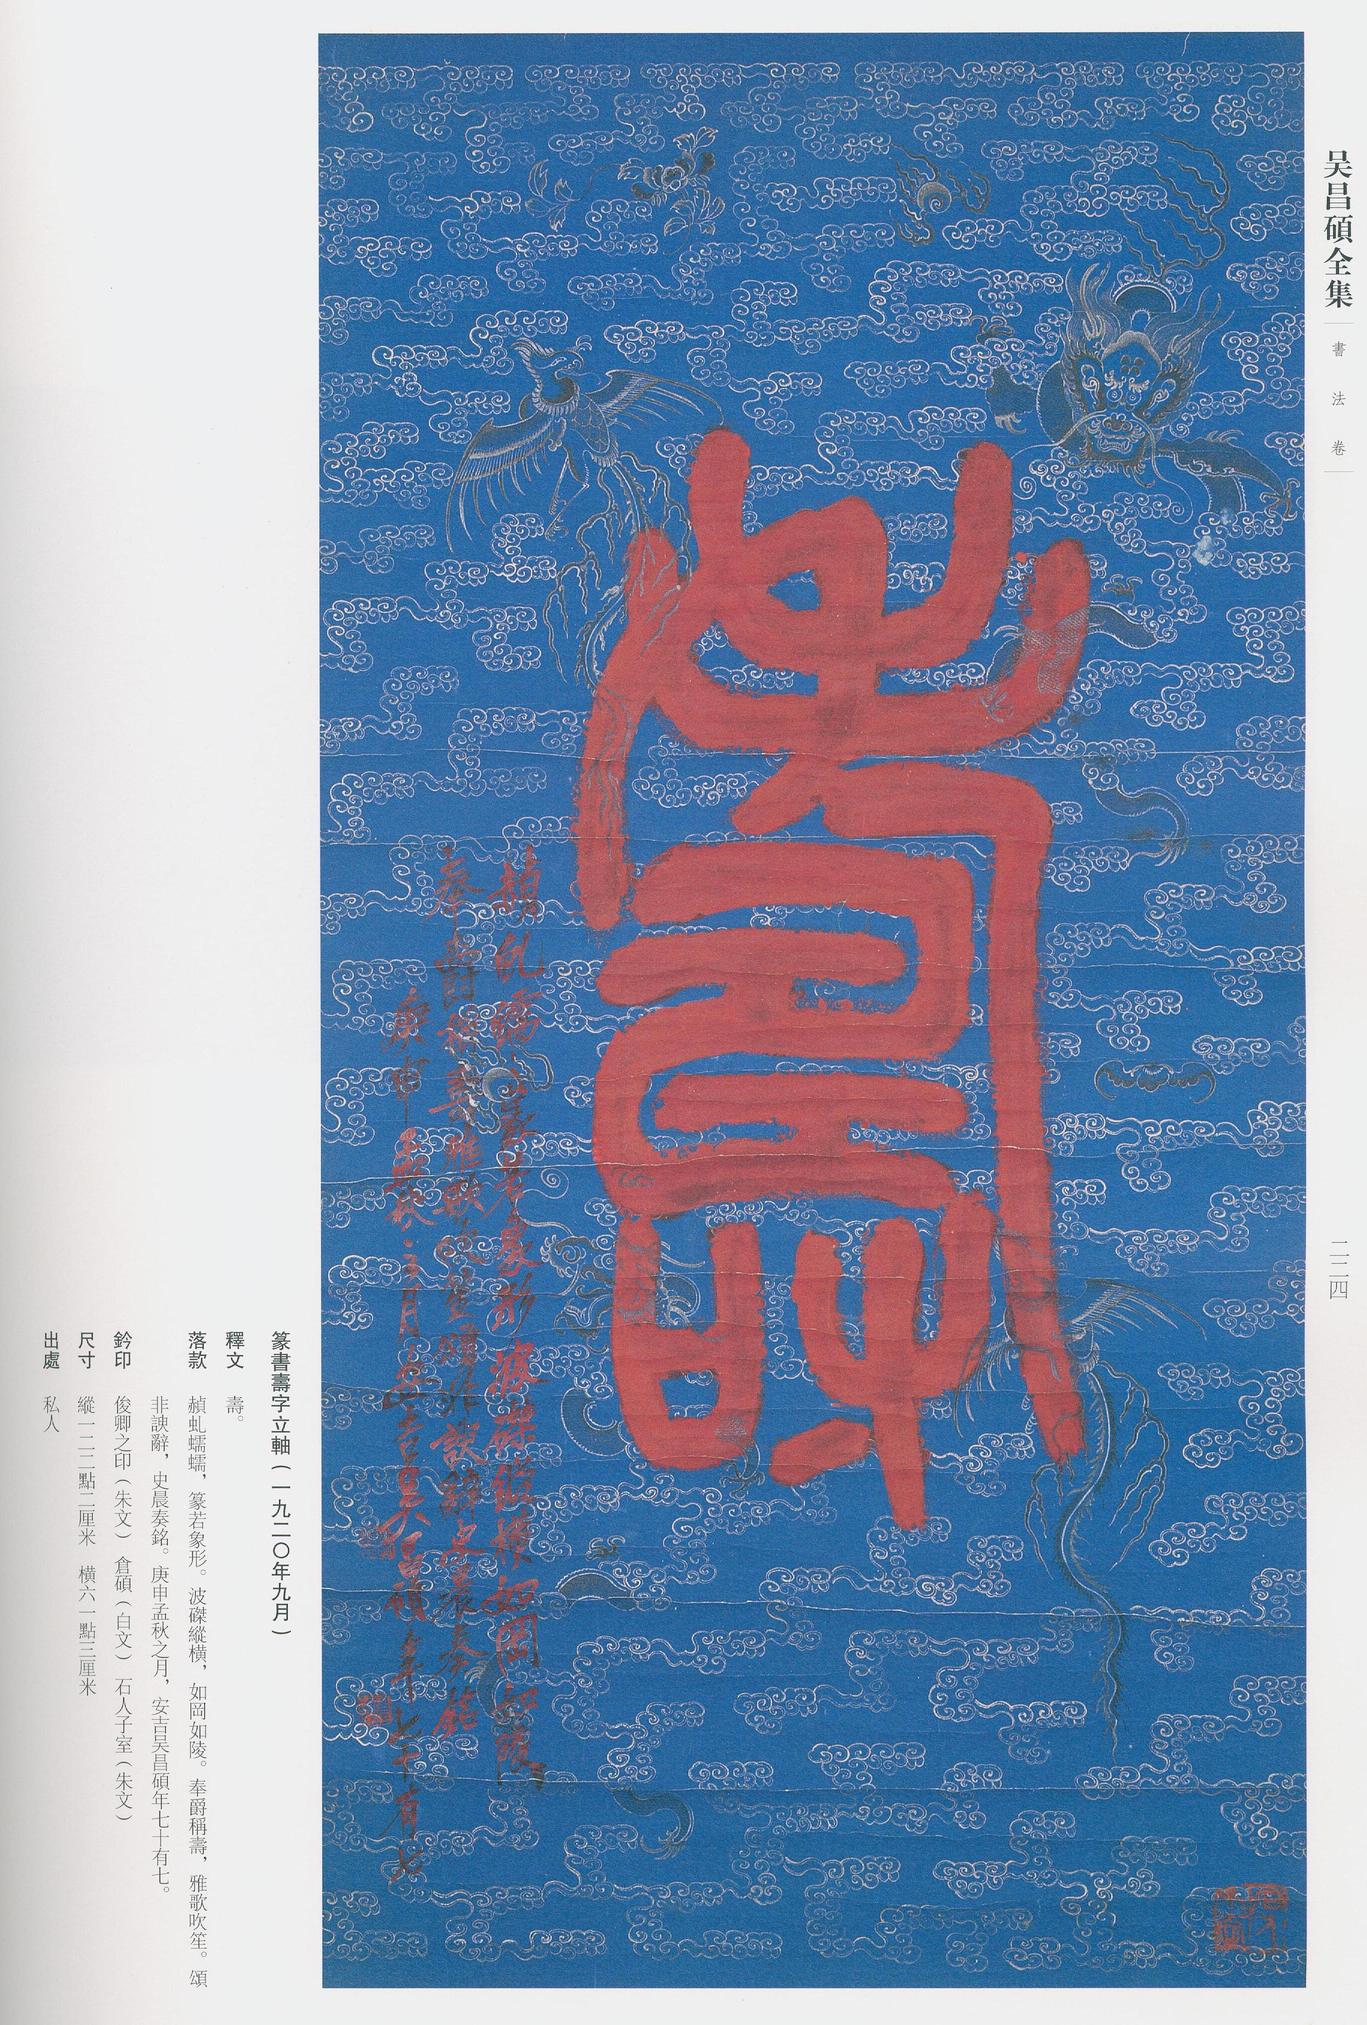 吴昌碩全集
書法卷
二二四
壽
赬虬蠕蠕篆若象形波磔縱横如岡如陵
奉爵稱壽雅歌吹笙頌非諛辭史晨奏銘
庚申孟秋之月安吉吴昌碩年七十有七
篆書壽字立軸(一九二〇年九月)
釋文 壽。
落款 赬虬蠕蠕,篆若象形。波磔縱横,如岡如陵。奉爵稱壽,雅歌吹笙。頌
非諛辭,史晨奏銘。庚申孟秋之月,安吉吴昌碩年七十有七。
鈐印 俊卿之印(朱文) 倉碩(白文) 石人子室(朱文)
尺寸 縱一二二點二厘米 横六一點三厘米
出處 私人